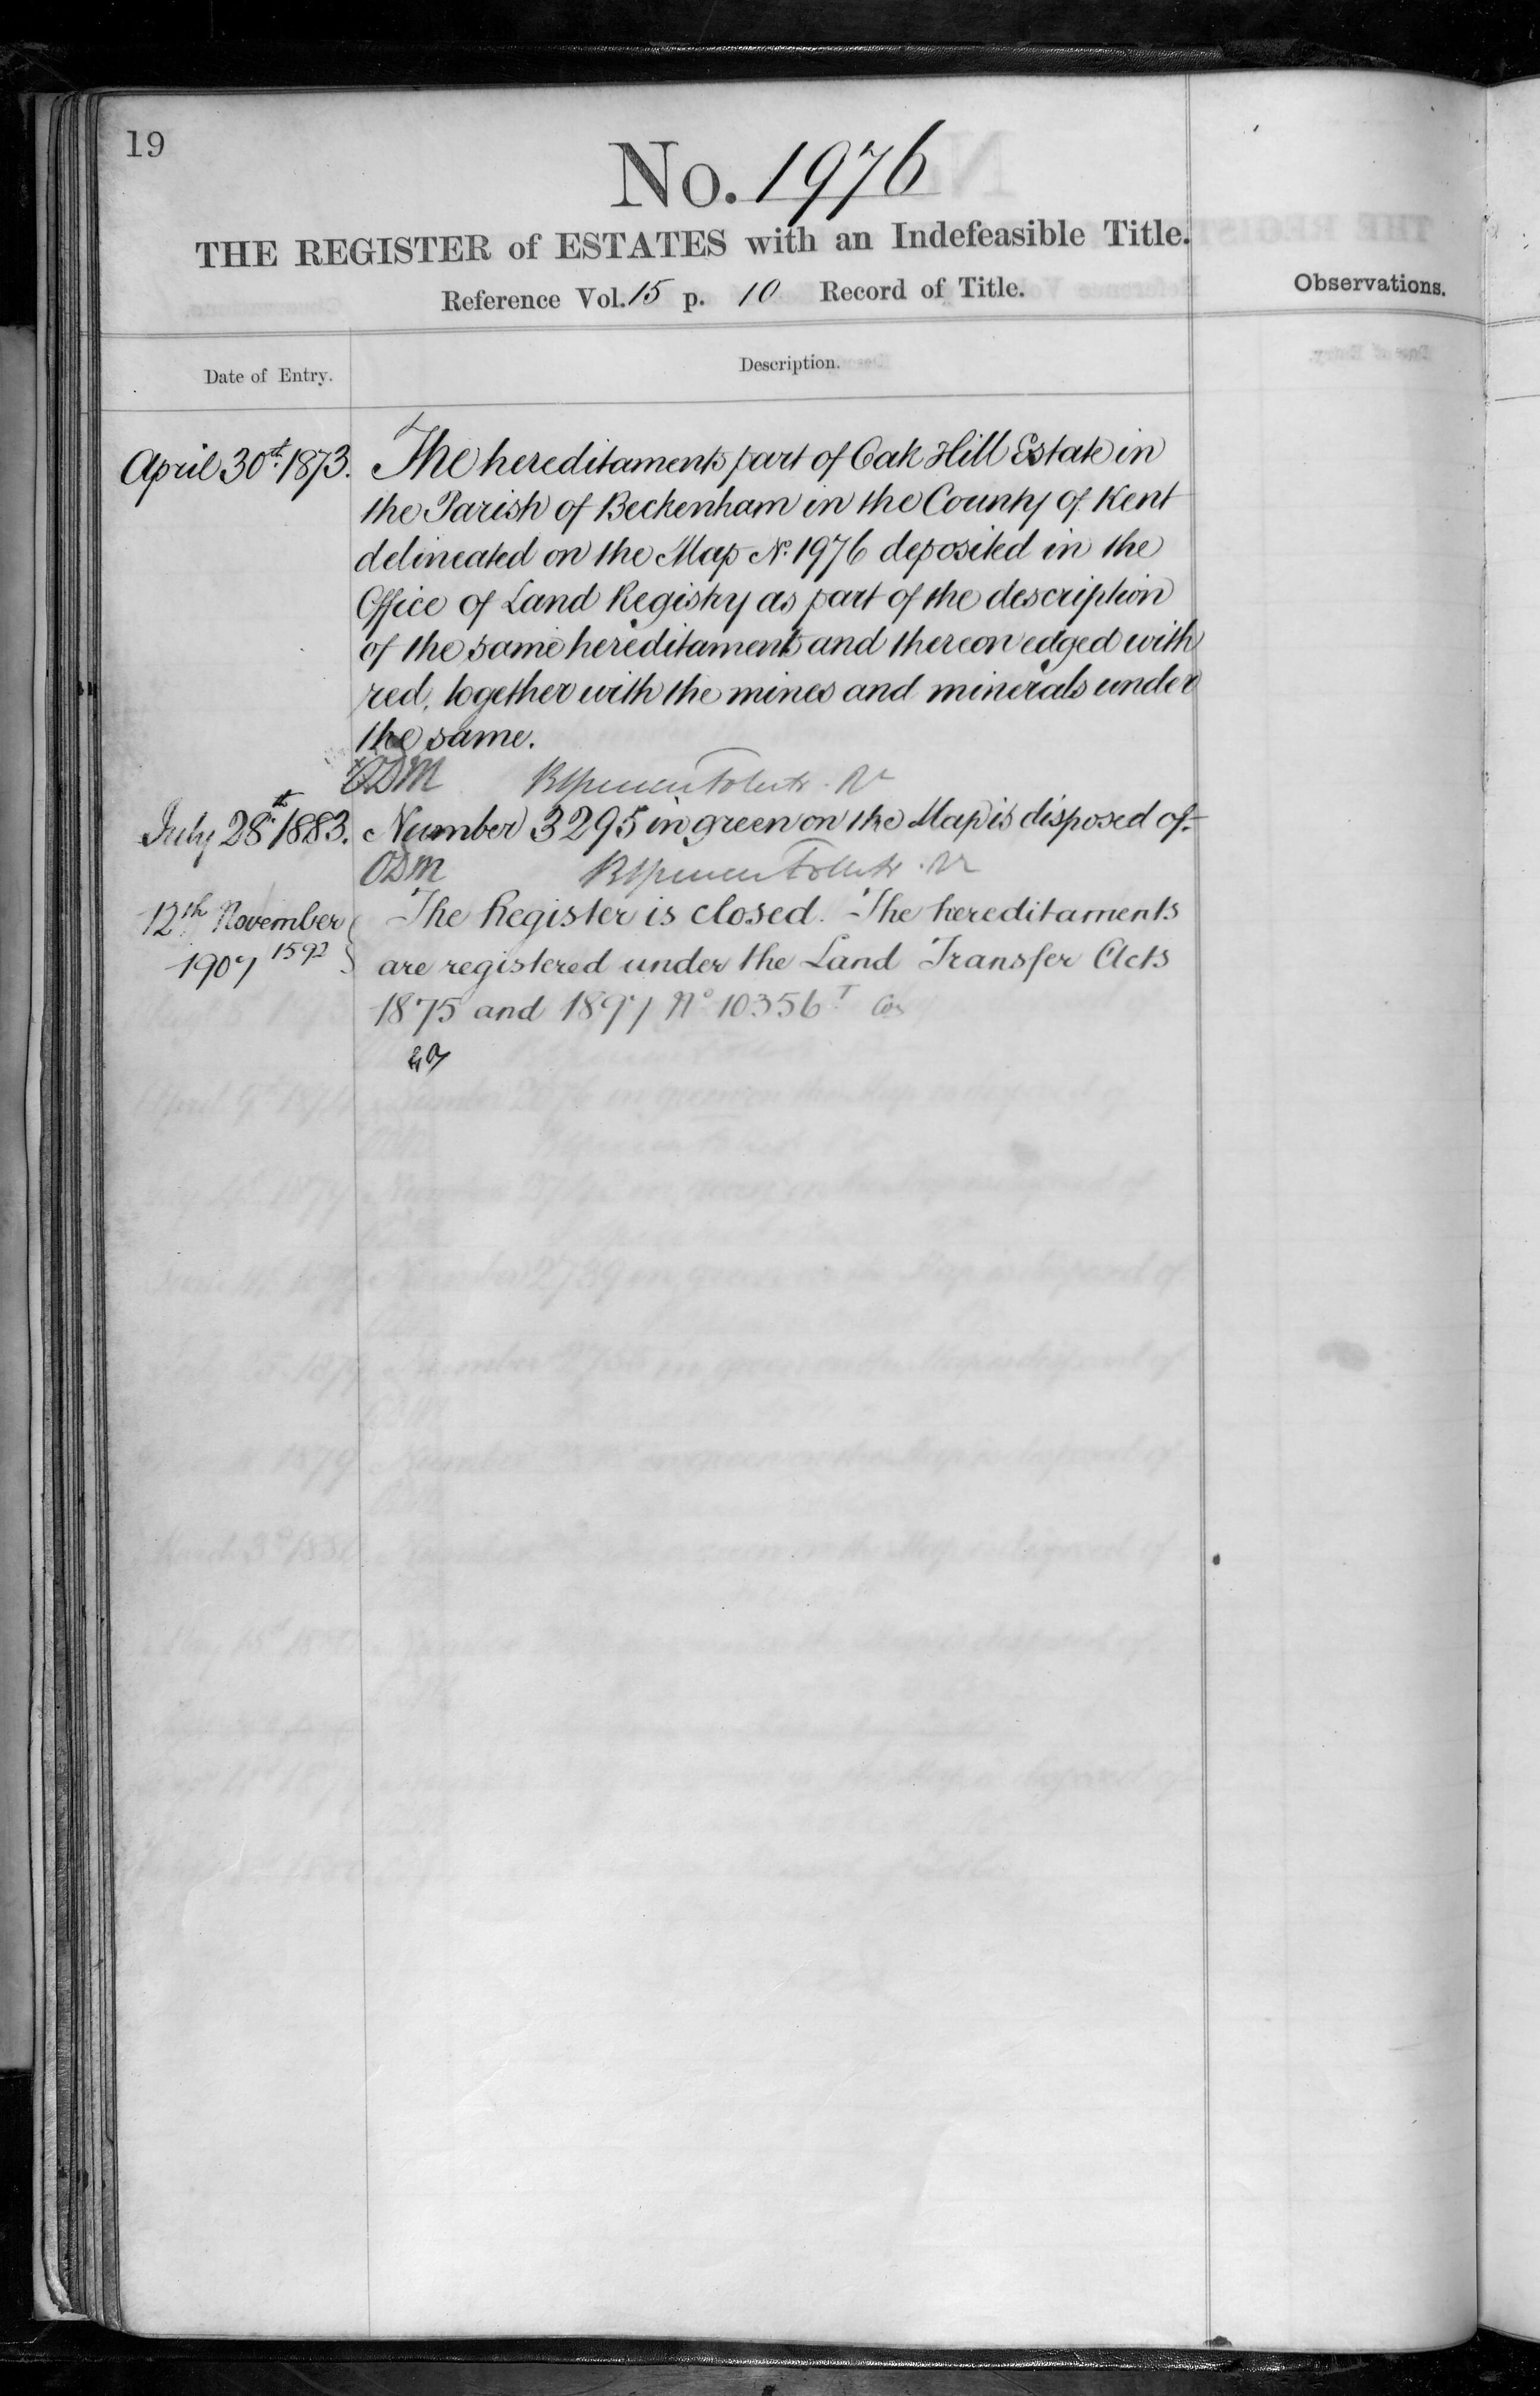 19
No. 1976
THE REGISTER of ESTATES with an Indefeasible Title.
Reference Vol. 15 p. 10 Record of Title.
Observations.
Date of Entry.
Description.
April 30th. 1873. The hereditaments part of Oak Hill Estate in
the Parish of Beckenham in the County of Kent
delineated on the Map No. 1976 deposited in the
Office of Land Registry as part of the description
of the same hereditaments and thereon edged with
red, together with the mines and minerals under
the same.
ODM
July 28th. 1883. Number 3295 in green on the Map is disposed of.
ODM
12th November The Register is closed. The hereditaments
1907 1592 are registered under the Land Transfer Acts
1875 and 1897 No 10356